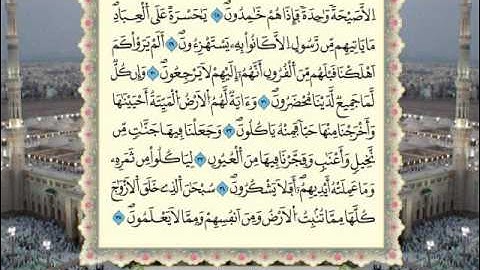 إِلَّا صَيْحَةً وَٰحِدَةً فَإِذَا هُمْ خَٰمِدُونَ ۝ يَٰحَسْرَةً عَلَى اَلْعِبَادِ
مَا يَاتِيهِم مِّن رَّسُولٍ اِلَّا كَانُوا بِهِۦ يَسْتَهْزِءُونَ ۝ أَلَمْ يَرَوْا كَمَ
اَهْلَكْنَا قَبْلَهُم مِّنَ اَلْقُرُونِ أَنَّهُمُۥ إِلَيْهِمْ لَا يَرْجِعُونَ ۝ وَإِن كُلٌّ
لَّمَا جَمِيعٌ لَّدَيْنَا مُحْضَرُونَ ۝ وَءَايَةٌ لَّهُمُ اُلْأَرْضُ اُلْمَيِّتَةُ أَحْيَيْنَٰهَا
وَأَخْرَجْنَا مِنْهَا حَبّاً فَمِنْهُ يَاكُلُونَ ۝ وَجَعَلْنَا فِيهَا جَنَّٰتٍ مِّن
نَّخِيلٍ وَأَعْنَٰبٍ وَفَجَّرْنَا فِيهَا مِنَ اَلْعُيُونِ ۝ لِيَاكُلُوا مِن ثَمَرِهِۦ
وَمَا عَمِلَتْهُ أَيْدِيهِمُۥ أَفَلَا يَشْكُرُونَ ۝ سُبْحَٰنَ اَلذِے خَلَقَ اَلَازْوَٰجَ
كُلَّهَا مِمَّا تُنۢبِتُ اُلَارْضُ وَمِنَ اَنفُسِهِمْ وَمِمَّا لَا يَعْلَمُونَ ۝